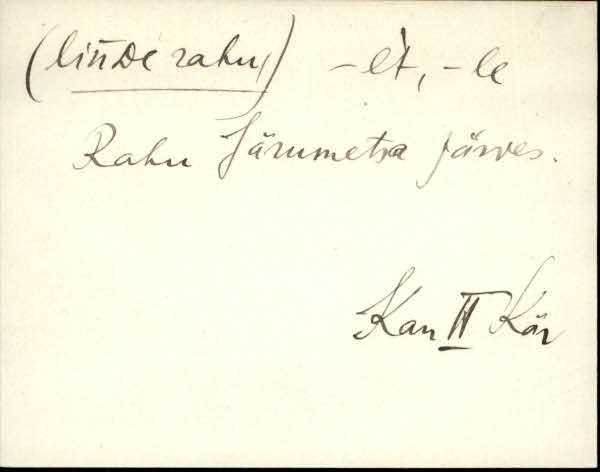 (lin̄De rahu,) -èt, -le
Rahu Järumetsa järves.
Kan II Kär